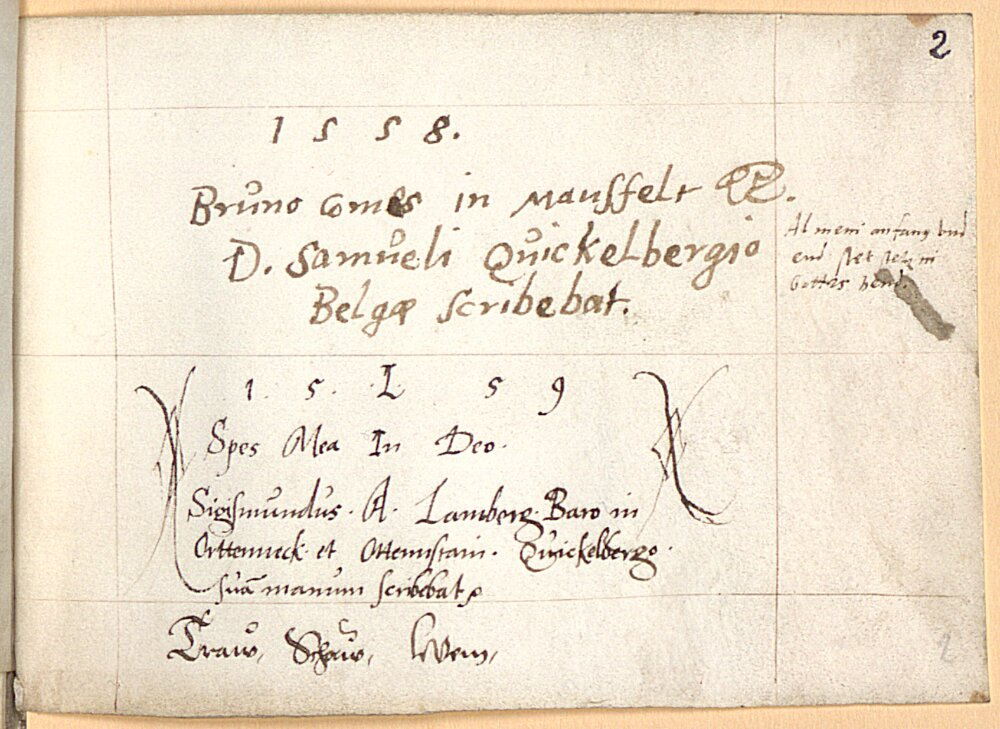 2
1 5 5 8.
Bruno Comes in Mansfelt
D. Samueli Quickelbergio
Belgæ scribebat.
Al mein anfang vnd
end stet in
Gottes hend.
1. 5. L 5 9
Spes Mea In Deo.
Sigismundus. A. Lamberg. Baro in
Orttenneck et Ottennstain. Quickelbergo.
suā manum scribebat
Traw, Schaw, Wem,
2